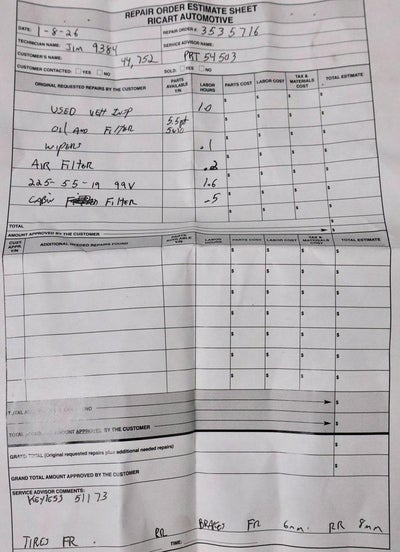 REPAIR ORDER ESTIMATE SHEET
RICART AUTOMOTIVE
DATE: 1-8-26 REPAIR ORDER #: 3535716
TECHNICIAN NAME: Jim 9384 SERVICE ADVISOR NAME:
CUSTOMER'S NAME: 44,752 PRT 54503
CUSTOMER CONTACTED: YES NO SOLD: YES NO
ORIGINAL REQUESTED REPAIRS BY THE CUSTOMER PARTS AVAILABLE Y/N LABOR HOURS PARTS COST LABOR COST TAX & MATERIALS COST TOTAL ESTIMATE
USED VEH INSP 1.0 $ $ $ $
OIL AND FILTER 5.5qt 5w30 $ $ $ $
WIPERS .1 $ $ $ $
AIR FILTER .2 $ $ $ $
225-55-19 99V 1.6 $ $ $ $
CABIN FILTER .5 $ $ $ $
TOTAL $
AMOUNT APPROVED BY THE CUSTOMER $
CUST. APPR. Y/N ADDITIONAL NEEDED REPAIRS FOUND PARTS AVAILABLE Y/N LABOR HOURS PARTS COST LABOR COST TAX & MATERIALS COST TOTAL ESTIMATE
$ $ $ $
$ $ $ $
$ $ $ $
$ $ $ $
$ $ $ $
$ $ $ $
$ $ $ $
NO $
AMOUNT APPROVED BY THE CUSTOMER $
GRAND TOTAL (Original requested repairs plus additional needed repairs) $
GRAND TOTAL AMOUNT APPROVED BY THE CUSTOMER $
SERVICE ADVISOR COMMENTS:
KEYLESS 51173
BRAKES FR 6mm. RR 8mm
TIRES FR. RR
TIME: